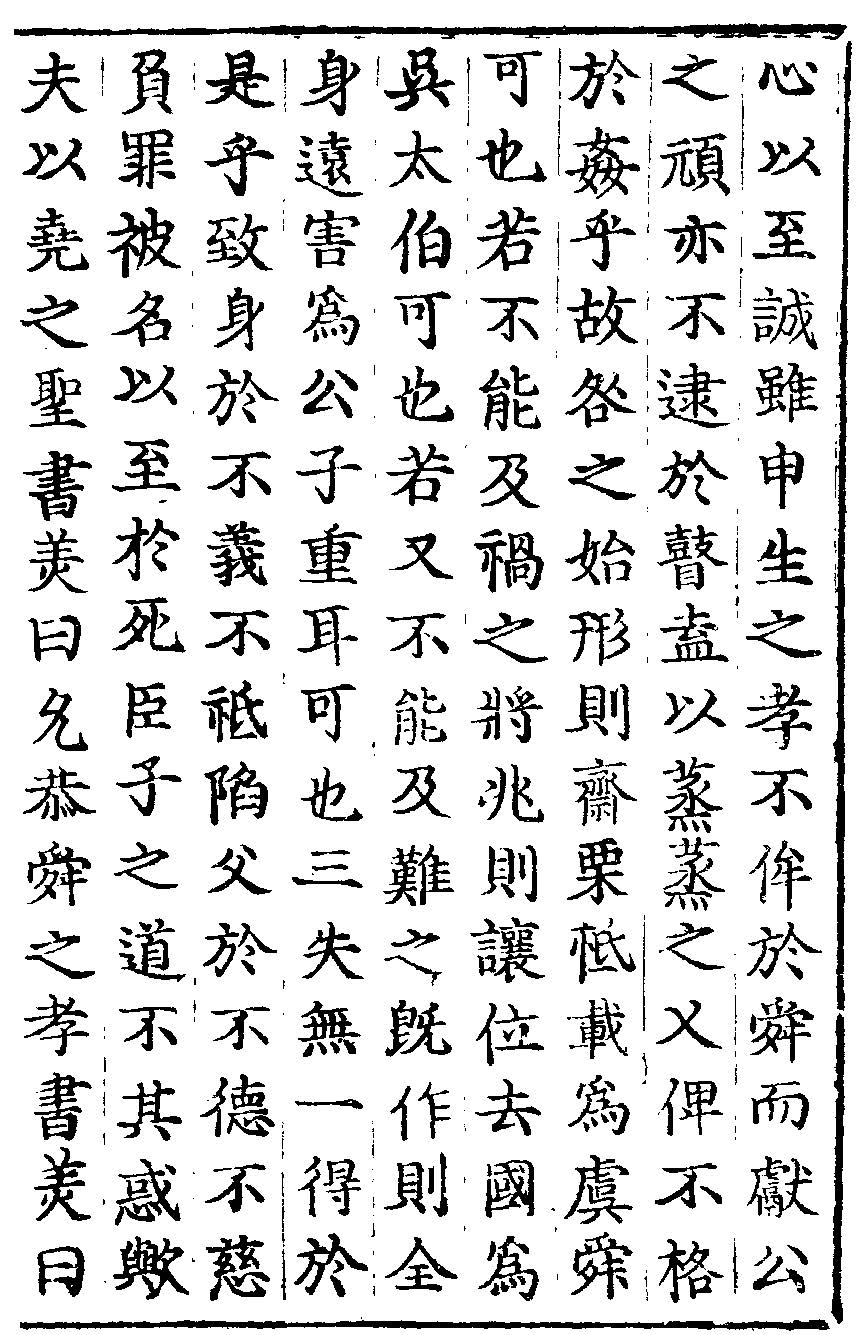 心以至誠雖申生之孝不侔於舜而獻公
之頑亦不逮於瞽盍以蒸蒸之乂俾不格
於姦乎故咎之始形則齋栗祗載爲虞舜
可也若不能及禍之將兆則讓位去國爲
吳太伯可也若又不能及難之旣作則全
身遠害爲公子重耳可也三失無一得於
是乎致身於不義不祗陷父於不德不慈
負罪被名以至於死臣子之道不其惑歟
夫以堯之聖書美曰允恭舜之孝書美曰